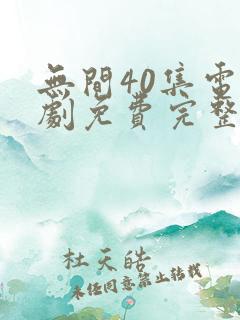 無間40集電
劇免費完整
杜天皓
未经同意禁止转载